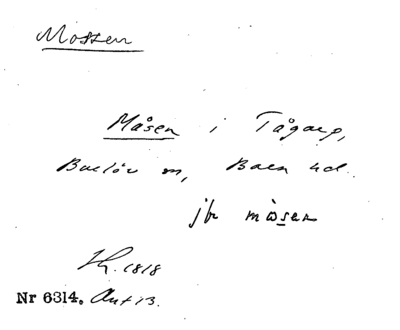 Mossen
Måsen i Tågarp,
Burlöv sn, Bara hd.
jbr måsen
Kt. 1818
Nr 6314. Akt 13.